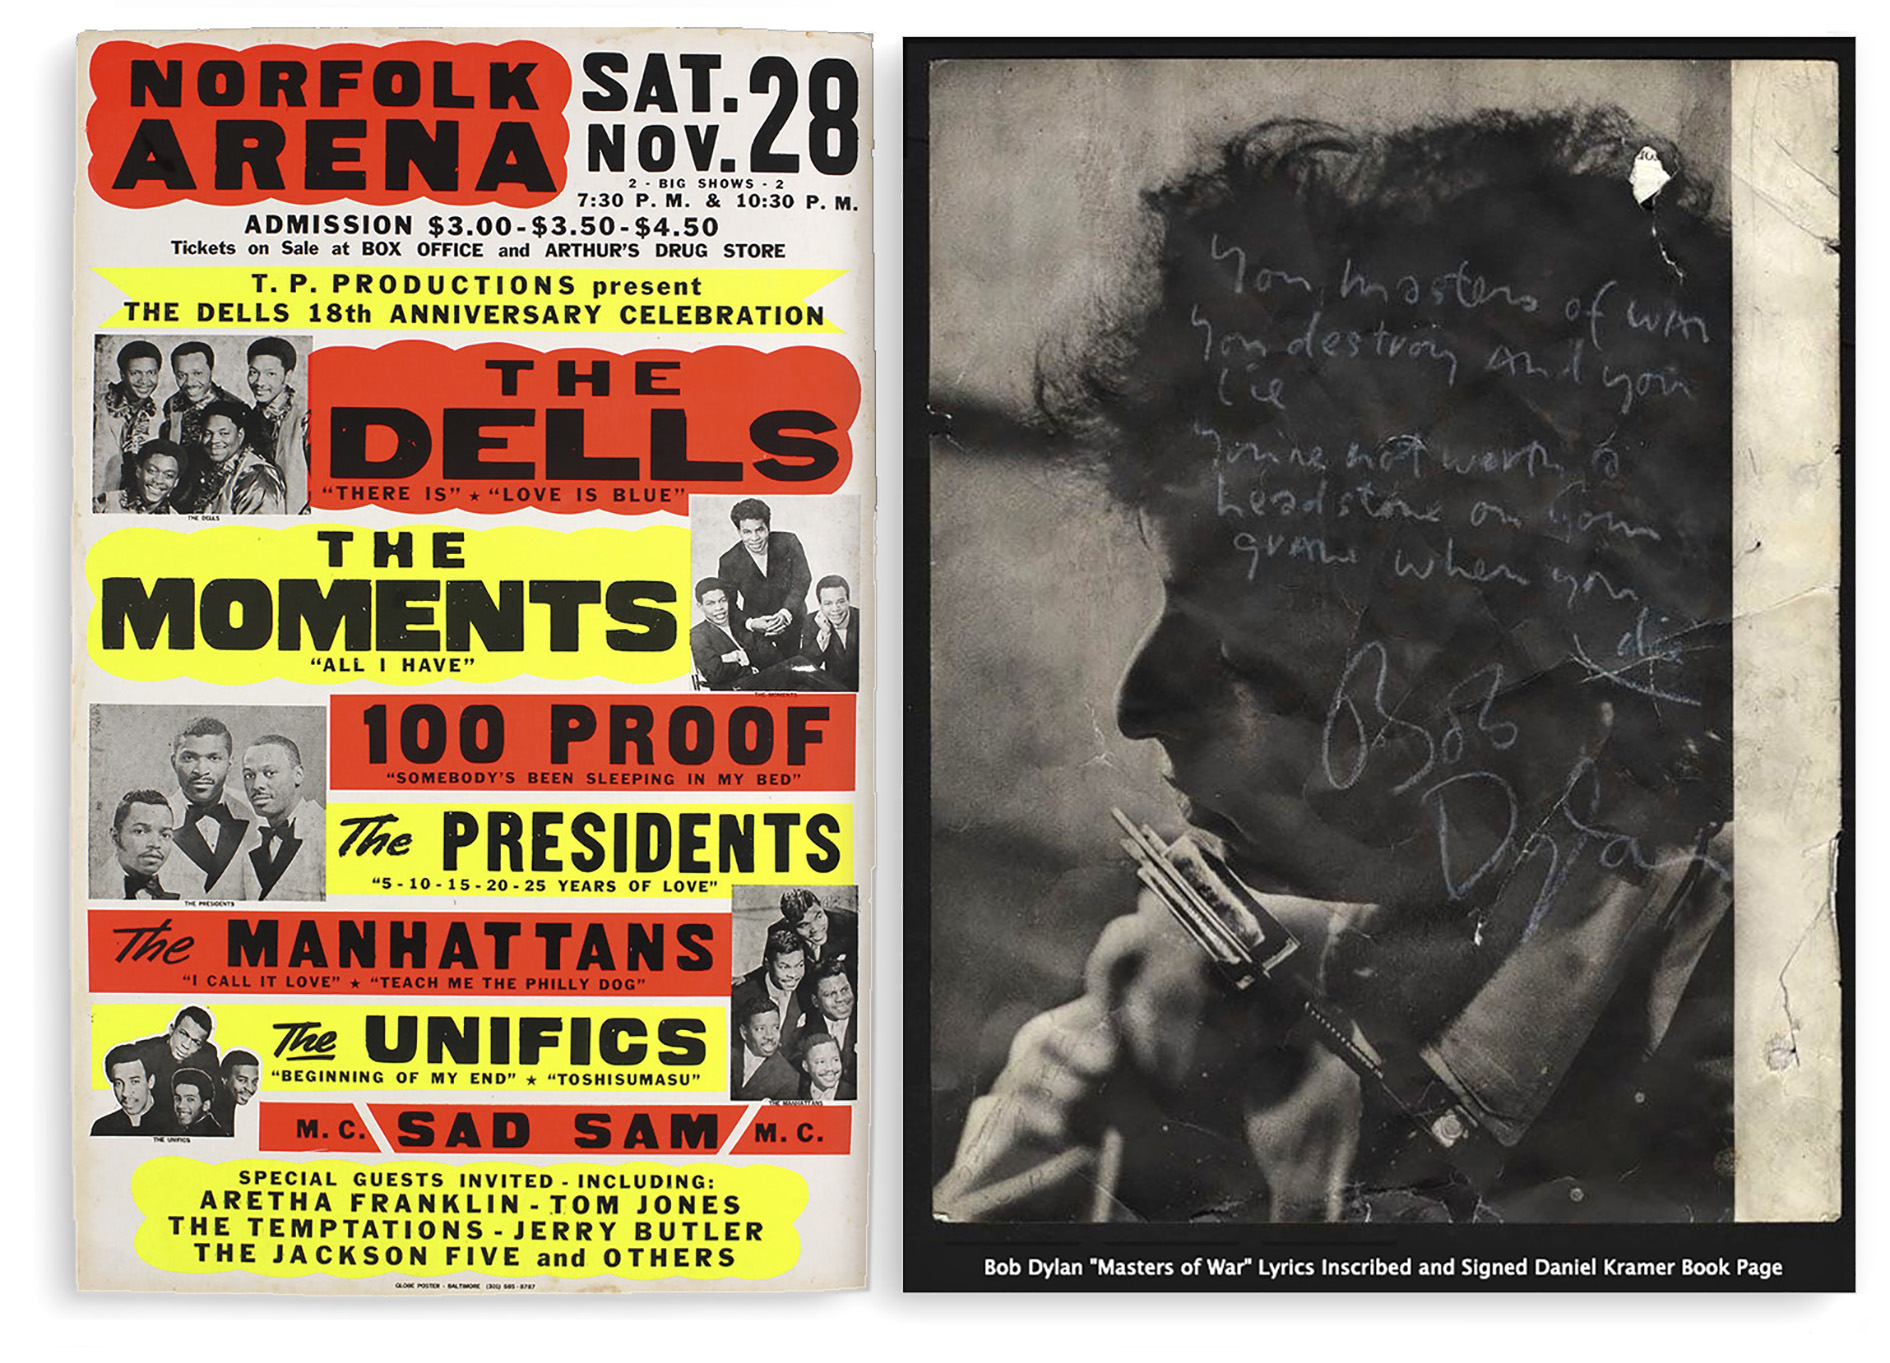 NORFOLK
ARENA
SAT.
NOV. 28
2 - BIG SHOWS - 2
7:30 P. M. & 10:30 P. M.
ADMISSION $3.00-$3.50-$4.50
Tickets on Sale at BOX OFFICE and ARTHUR'S DRUG STORE
T. P. PRODUCTIONS present
THE DELLS 18th ANNIVERSARY CELEBRATION
THE
DELLS
"THERE IS" ★ "LOVE IS BLUE"
THE DELLS
THE
MOMENTS
"ALL I HAVE"
THE MOMENTS
100 PROOF
"SOMEBODY'S BEEN SLEEPING IN MY BED"
The PRESIDENTS
"5-10-15-20-25 YEARS OF LOVE"
THE PRESIDENTS
The MANHATTANS
"I CALL IT LOVE" ★ "TEACH ME THE PHILLY DOG"
THE MANHATTANS
The UNIFICS
"BEGINNING OF MY END" ★ "TOSHISUMASU"
THE UNIFICS
M. C. SAD SAM M. C.
SPECIAL GUESTS INVITED - INCLUDING:
ARETHA FRANKLIN - TOM JONES
THE TEMPTATIONS - JERRY BUTLER
THE JACKSON FIVE and OTHERS
GLOBE POSTER - BALTIMORE (301) 685-8787
You masters of war
You destroy and you
lie
You're not worth a
headstone on your
grave when you
die
Bob
Dylan
Bob Dylan "Masters of War" Lyrics Inscribed and Signed Daniel Kramer Book Page